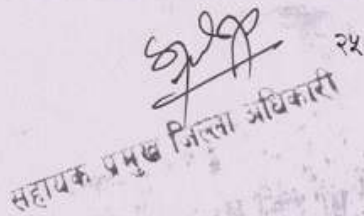 २५
सहायक प्रमुख जिल्ला अधिकारी